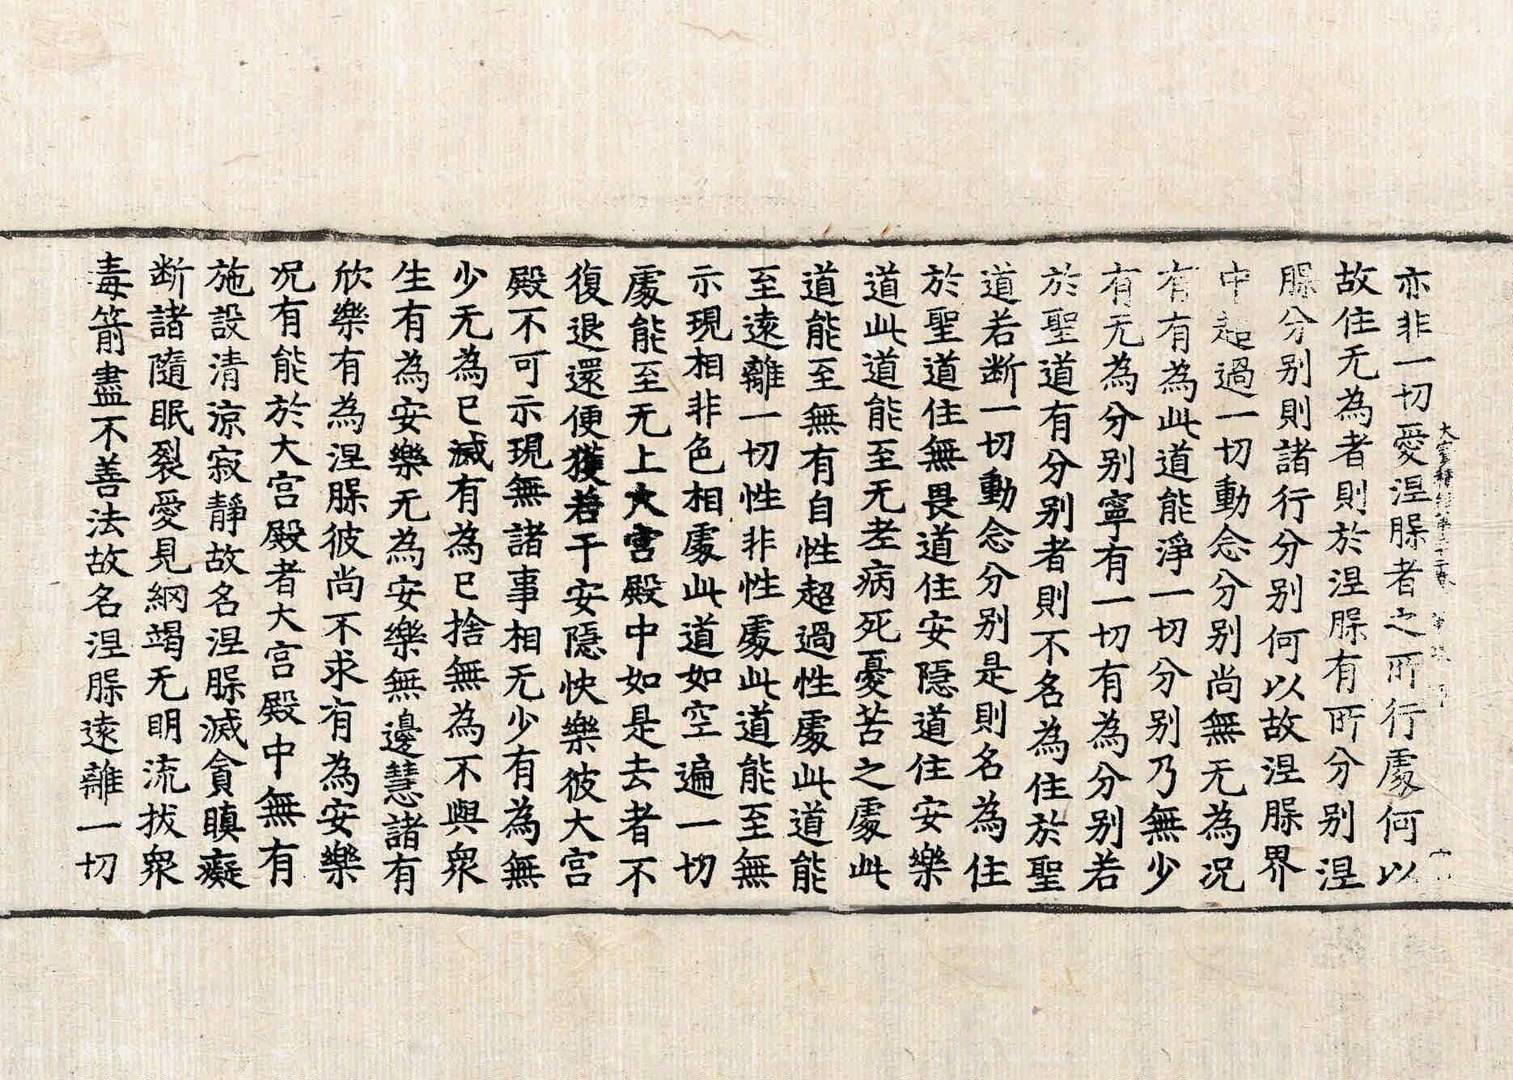 亦非一切愛涅槃者之所行處何以
故住无為者則於涅槃有所分別涅
槃分別則諸行分別何以故涅槃界
中超過一切動念分別尚無无為况
有有為此道能淨一切分別乃無少
有无為分別寧有一切有為分別若
於聖道有分別者則不名為住於聖
道若断一切動念分別是則名為住
於聖道住無畏道住安隱道住安樂
道此道能至无老病死憂苦之處此
道能至無有自性超過性處此道能
至遠離一切性非性處此道能至無
示現相非色相處此道如空遍一切
處能至无上大宮殿中如是去者不
復退還便獲若干安隱快樂彼大宮
殿不可示現無諸事相无少有為無
少无為已滅有為已捨無為不與衆
生有為安樂无為安樂無邊慧諸有
欣樂有為涅槃彼尚不求有為安樂
况有能於大宮殿者大宮殿中無有
施設清涼寂靜故名涅槃滅貪瞋癡
断諸隨眠裂愛見網竭无明流拔衆
毒箭盡不善法故名涅槃遠離一切